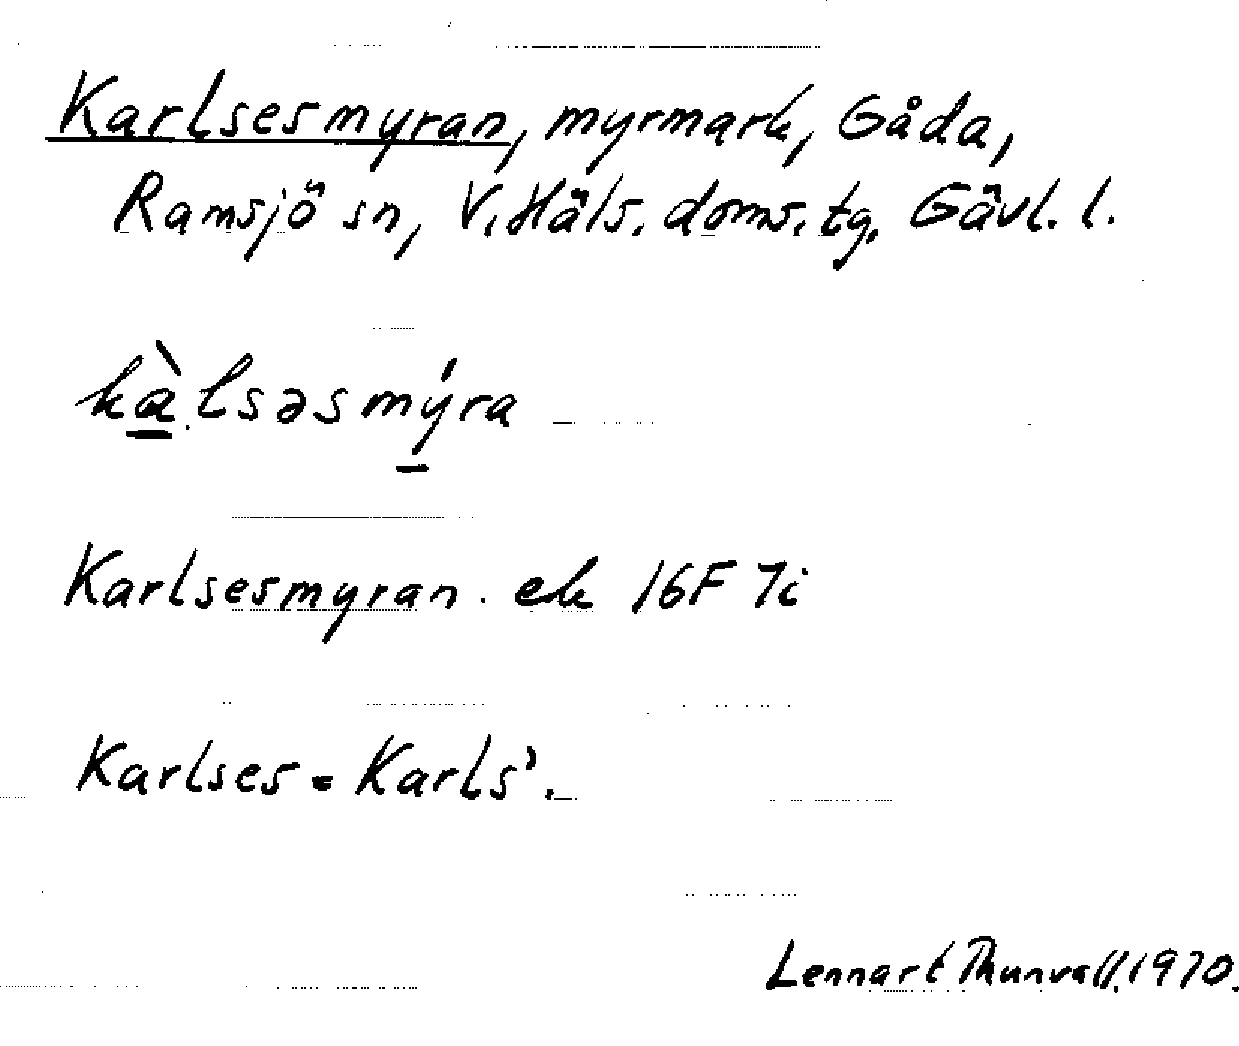 Karlsesmyran, myrmark, Gåda,
Ramsjö sn, V. Häls. doms. tg. Gävl. l.
kà̱.lsəsmý̱ra
Karlsesmyran. ek 16F 7i
Karlses = Karls'.
Lennart Thunvall. 1970.